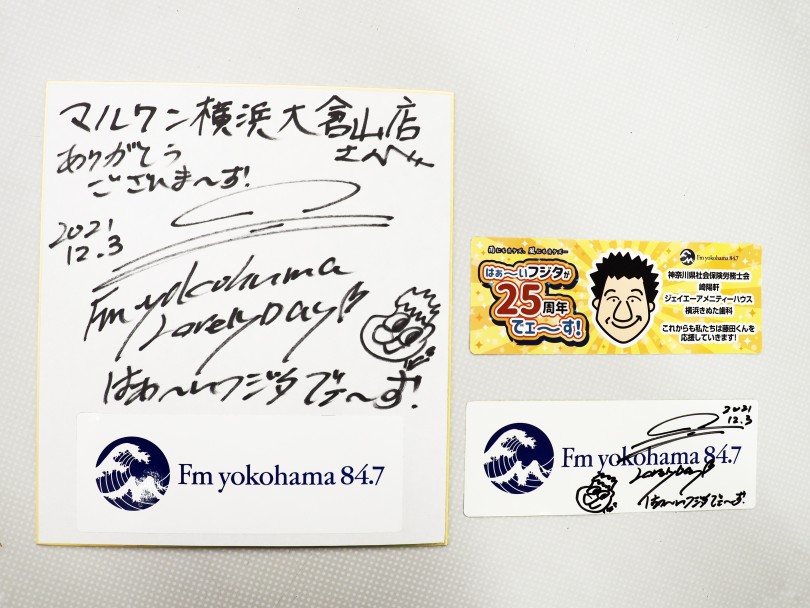 マルワン横浜大倉山店
さんへ
ありがとう
ございま〜す!
2021
12.3
Fm yokohama
Lovely Day♡
はぁ〜いフジタでェ〜す!
Fm yokohama 84.7
雨にもマケズ、風にもマケズ…
Fm yokohama 84.7
はぁ〜いフジタが
25周年
でェ〜す!
神奈川県社会保険労務士会
崎陽軒
ジェイエーアメニティーハウス
横浜きぬた歯科
これからも私たちは藤田くんを
応援していきます!
2021
12.3
Fm yokohama 84.7
Lovely Day♡
はぁ〜いフジタでェ〜す!